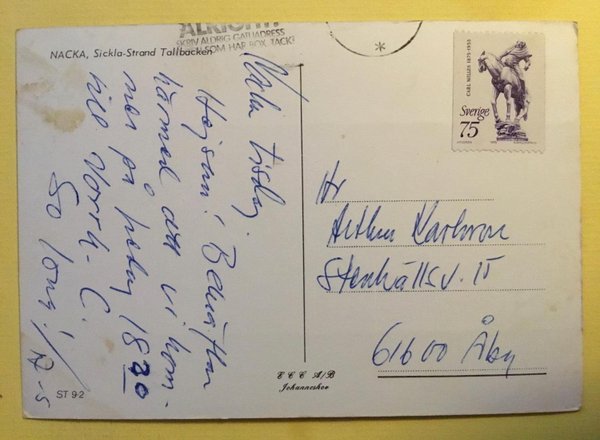 NACKA, Sickla-Strand Tallbacken
ALRIGHT!
SKRIV ALDRIG GATUADRESS
SOM HAR BOX, TACK!
CARL MILLES 1875-1955
Sverige
75
Nacka tisdag.
Hejsan! Bekräftar
härmed att vi kom-
mer på fredag 1820
till Norrk. C.
So long!
Hr
Arthur Karlsson
Stenhällsv. 15
61600 Åby
E C C A/B
Johanneshov
ST 9-2